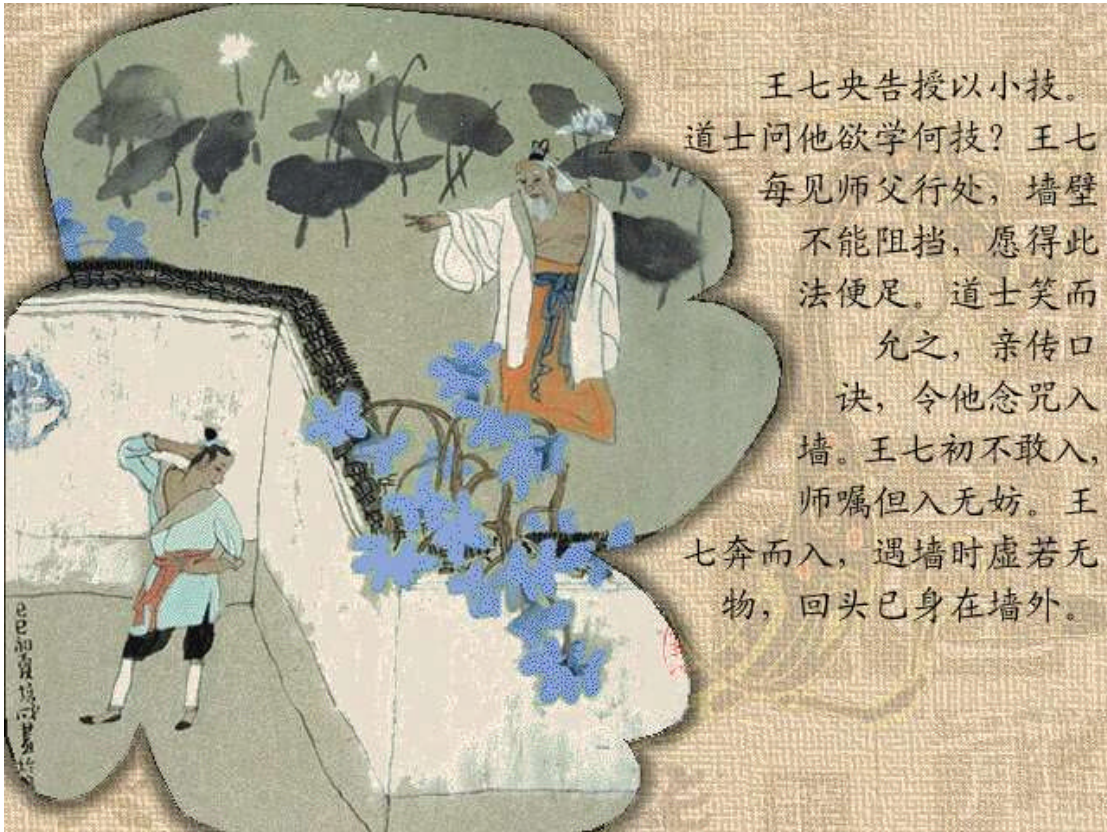 王七央告授以小技。
道士问他欲学何技？王七
每见师父行处，墙壁
不能阻挡，愿得此
法便足。道士笑而
允之，亲传口
诀，令他念咒入
墙。王七初不敢入，
师嘱但入无妨。王
七奔而入，遇墙时虚若无
物，回头已身在墙外。